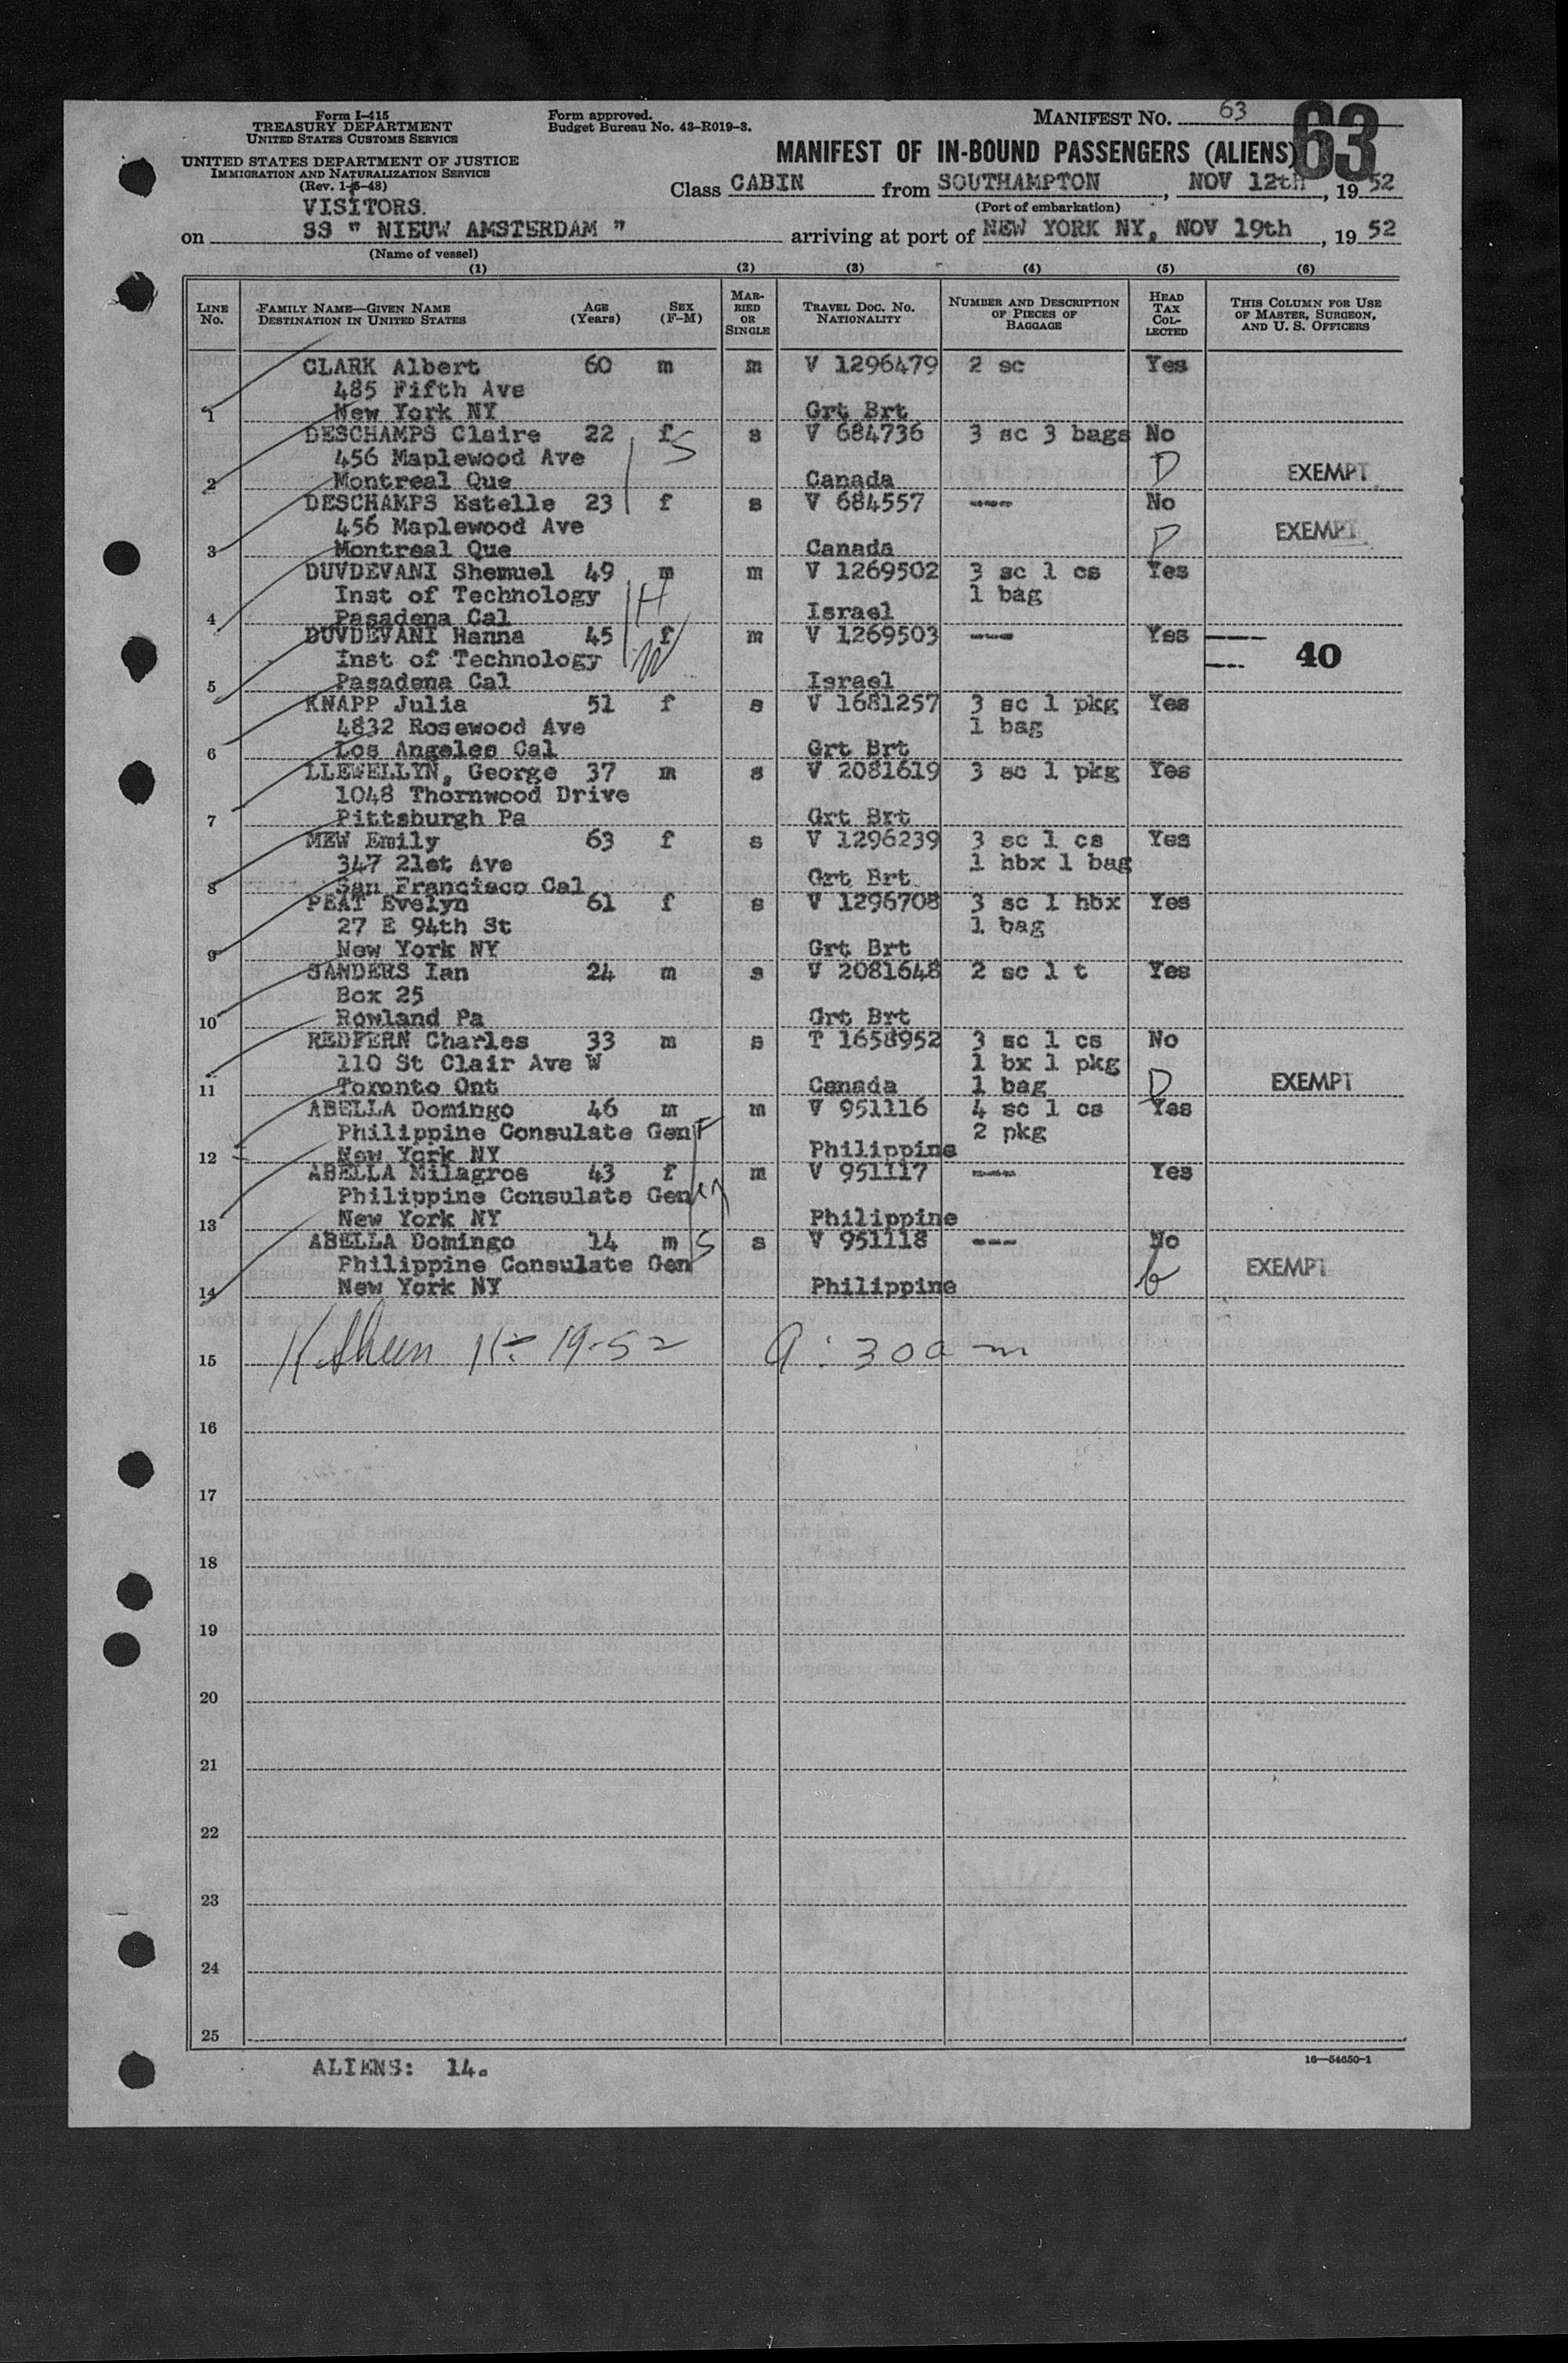 Form I-415
TREASURY DEPARTMENT
UNITED STATES CUSTOMS SERVICE
UNITED STATES DEPARTMENT OF JUSTICE
IMMIGRATION AND NATURALIZATION SERVICE
(Rev. 1-6-48)
VISITORS.
Form approved.
Budget Bureau No. 43-R019-3.
MANIFEST NO. 63
63
MANIFEST OF IN-BOUND PASSENGERS (ALIENS)
Class CABIN from SOUTHAMPTON, NOV 12th, 1952
(Port of embarkation)
on SS " NIEUW AMSTERDAM " arriving at port of NEW YORK NY, NOV 19th, 1952
(Name of vessel)
(1) (2) (3) (4) (5) (6)
LINE No. FAMILY NAME—GIVEN NAME DESTINATION IN UNITED STATES AGE (Years) SEX (F-M) MARRIED OR SINGLE TRAVEL DOC. NO. NATIONALITY NUMBER AND DESCRIPTION OF PIECES OF BAGGAGE HEAD TAX COLLECTED THIS COLUMN FOR USE OF MASTER, SURGEON, AND U. S. OFFICERS
CLARK Albert 60 m m V 1296479 2 sc Yes
485 Fifth Ave
1 New York NY Grt Brt
DESCHAMPS Claire 22 f S s V 684736 3 sc 3 bags No
456 Maplewood Ave D EXEMPT
2 Montreal Que Canada
DESCHAMPS Estelle 23 f s V 684557 --- No
456 Maplewood Ave D EXEMPT
3 Montreal Que Canada
DUVDEVANI Shemuel 49 m m V 1269502 3 sc 1 cs Yes
Inst of Technology H 1 bag
4 Pasadena Cal Israel
DUVDEVANI Hanna 45 f m V 1269503 --- Yes
Inst of Technology W 40
5 Pasadena Cal Israel
KNAPP Julia 51 f s V 1681257 3 sc 1 pkg Yes
4832 Rosewood Ave 1 bag
6 Los Angeles Cal Grt Brt
LLEWELLYN, George 37 m s V 2081619 3 sc 1 pkg Yes
1048 Thornwood Drive
7 Pittsburgh Pa Grt Brt
MEW Emily 63 f s V 1296239 3 sc 1 cs Yes
347 21st Ave 1 hbx 1 bag
8 San Francisco Cal Grt Brt
PEAT Evelyn 61 f s V 1296708 3 sc 1 hbx Yes
27 E 94th St 1 bag
9 New York NY Grt Brt
SANDERS Ian 24 m s V 2081648 2 sc 1 t Yes
Box 25
10 Rowland Pa Grt Brt
REDFERN Charles 33 m s T 1658952 3 sc 1 cs No
110 St Clair Ave W 1 bx 1 pkg
11 Toronto Ont Canada 1 bag D EXEMPT
ABELLA Domingo 46 m m V 951116 4 sc 1 cs Yes
Philippine Consulate Gen F 2 pkg
12 New York NY Philippine
ABELLA Milagros 43 f m V 951117 --- Yes
Philippine Consulate Gen
13 New York NY Philippine
ABELLA Domingo 14 m S s V 951118 --- No
Philippine Consulate Gen EXEMPT
14 New York NY Philippine
15 11-19-52 9:30 am
16
17
18
19
20
21
22
23
24
25
ALIENS: 14.
16—54650-1